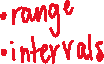 •range
•intervals